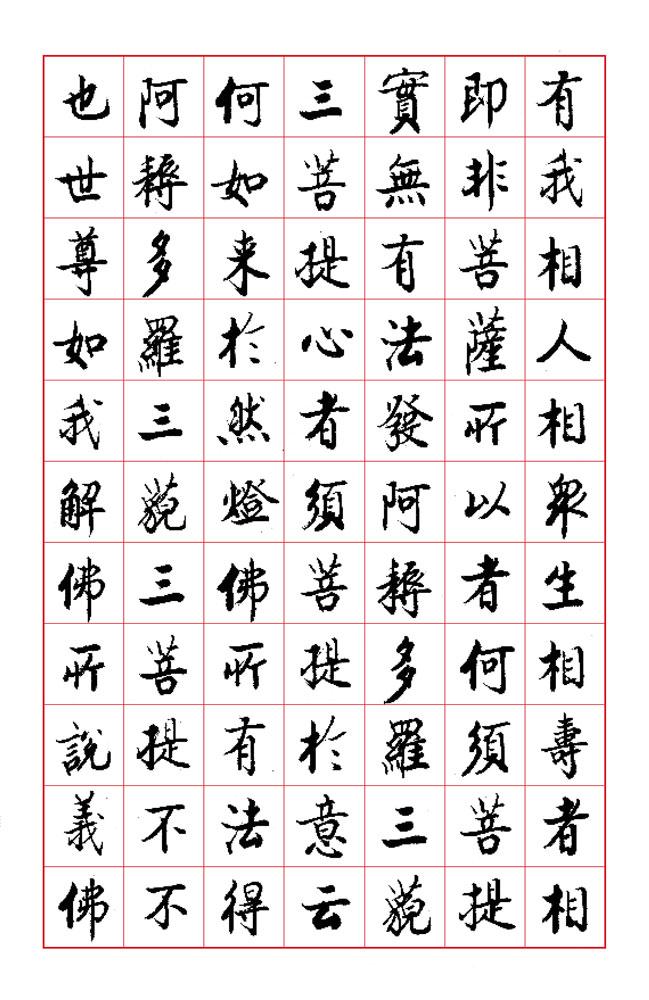 有我相人相眾生相壽者相
即非菩薩所以者何須菩提
實無有法發阿耨多羅三藐
三菩提心者須菩提於意云
何如来於然燈佛所有法得
阿耨多羅三藐三菩提不不
也世尊如我解佛所說義佛